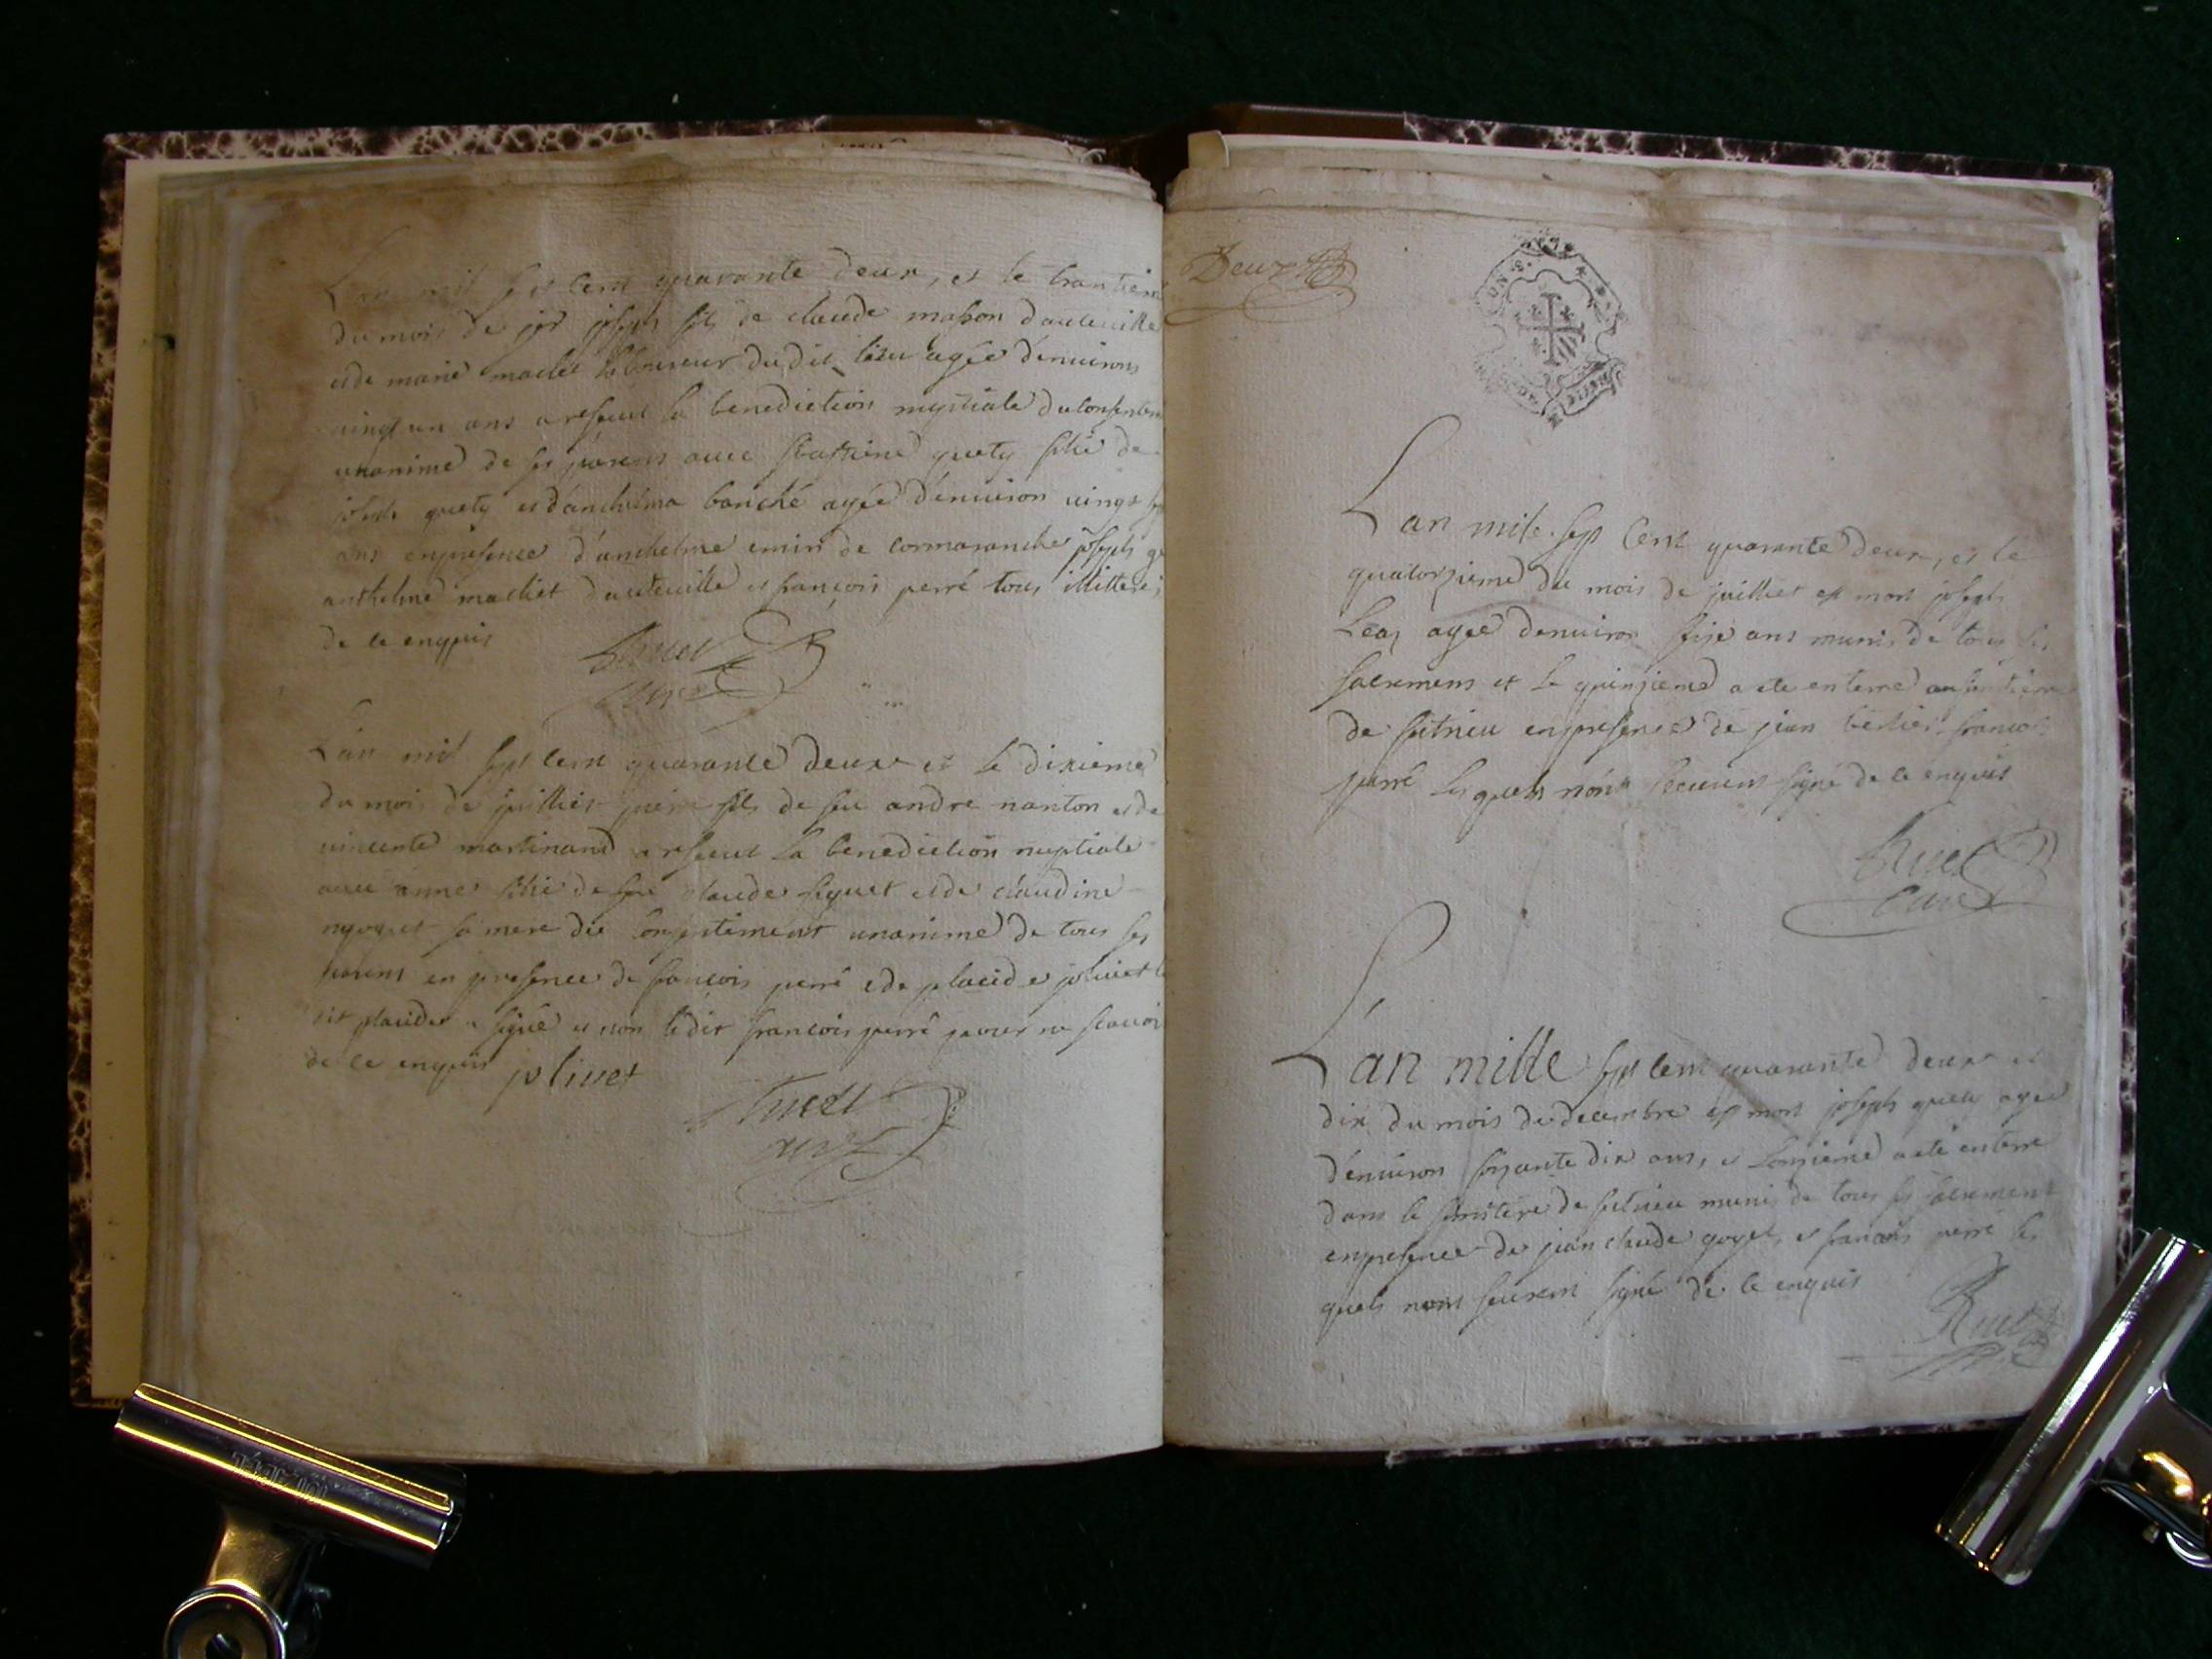 L'an mil sept cent quarante deux, et le trantiem
du mois de joseph fils de claude masson d'auteuille
et de marie machet laboureur dudit lieu agée d'enuirons
uingt un ans a resceu la benediction nuptiale du consentem
unanime de ses parens auec guety fille de
joseph guety et d'anthelma agée d'enuiron uingt
ans enpresence d'anthelme emin de cormaranche joseph
anthelme machet d'auteuille et françois perré tous illitteré
de ce enquis
Ruet
curé
L'an mil sept cent quarante deux et le dixieme
du mois de juilliet fils de feu andre nanton et de
uincente martinand a resceut la benediction nuptiale
auec anne fille de feu claude et de claudine
sa mere du consentiment unanime de tous ses
parens en presence de francois perré et de placide joliuet le
dit placide a signé et non ledit francois perré pour ne scauoir
de ce enquis joliuet
Ruet
curé
Deux
L'an mile sept cent quarante deux, et le
quatorzieme du mois de juilliet est mort joseph
agée denuiron seize ans munis de tous les
sacremens et le quinzieme a ete enterré
de sutrieu enpresence de jean berlier francois
perré lesquels n'ont sceurent signé de ce enquis
Ruet
Curé
L'an mille sept cent quarante deux et
dix du mois de decembre est mort joseph guety agée
d'enuiron soixante dix ans, et l'onzieme a eté enterré
dans le simitere de sutrieu munis de tous ses sacremens
enpresence de jean claude goyet, et francois perré les
quels nont sceurent signé de ce enquis
Ruet